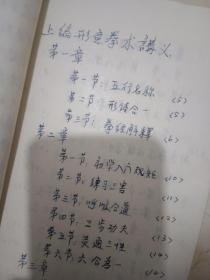 上编 形意拳术講义
第一章
第一节：五行名称 <5>
第二节：形体合一 <5>
第三节：拳经解释 <6>
第二章
第一节：初学入门规矩 <10>
第二节：练习三害 <10>
第三节：呼吸合道 <11>
第四节：三步功夫 <12>
第五节：灵通三性 <13>
第六节：六合为一 <14>
第三章